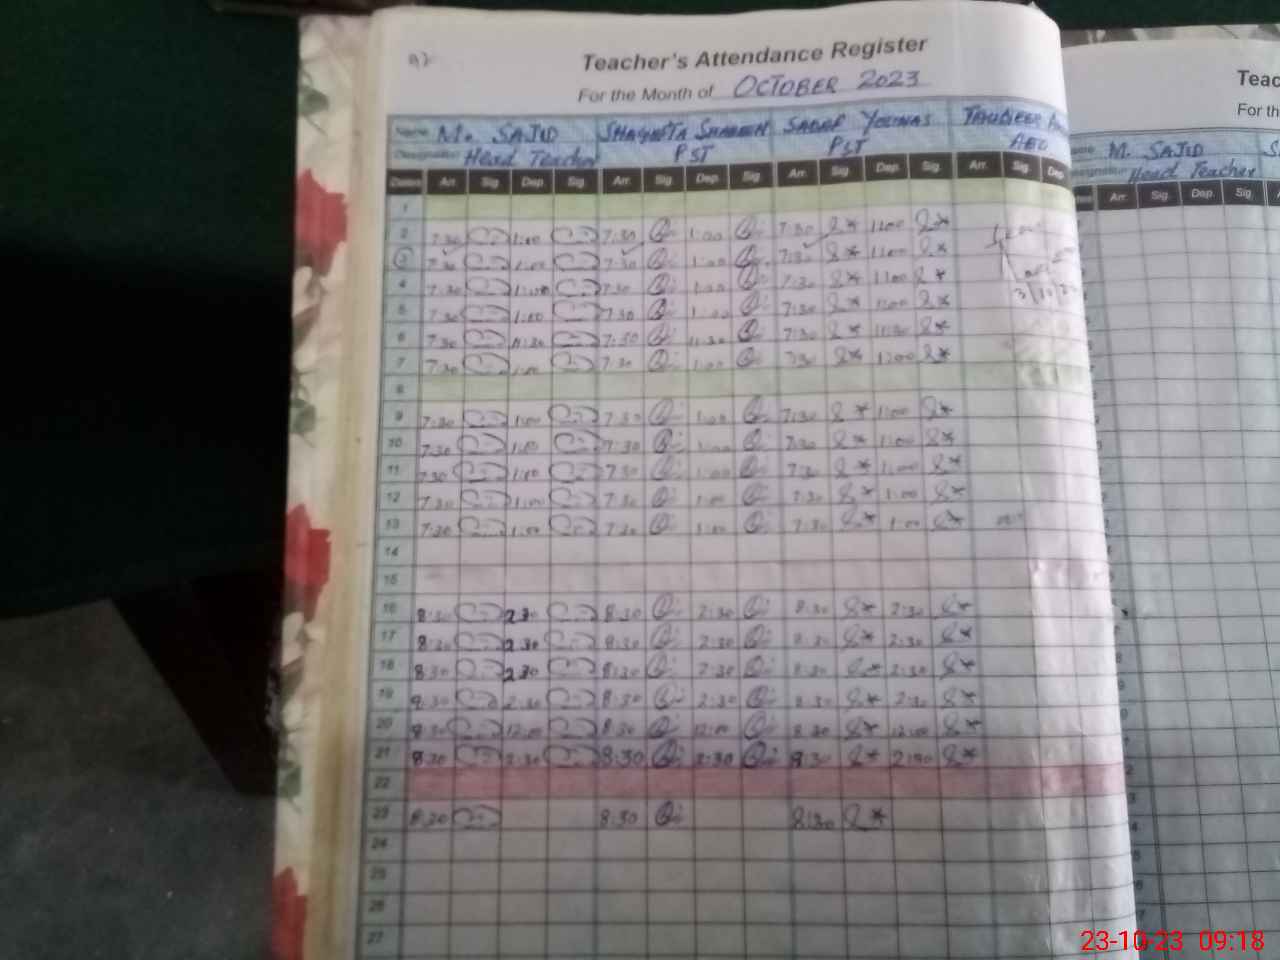 Teacher's Attendance Register
For the Month of OCTOBER 2023
Name M. SAJID SHAGUFTA SHAHEEN SADAF YOUNAS
Designation Head Teacher PST PST AEO
Dates Arr. Sig. Dep. Sig. Arr. Sig. Dep. Sig. Arr. Sig. Dep. Sig. Arr. Sig. Dep.
1
2 7:30 1:00 7:30 1:00 7:30 1:00
3 7:30 1:00 7:30 1:00 7:30 1:00
4 7:30 1:00 7:30 1:00 7:30 1:00
5 7:30 1:00 7:30 1:00 7:30 1:00
6 7:30 11:30 7:30 11:30 7:30 11:30
7 7:30 1:00 7:30 1:00 7:30 1:00
8
9 7:30 1:00 7:30 1:00 7:30 1:00
10 7:30 1:00 7:30 1:00 7:30 1:00
11 7:30 1:00 7:30 1:00 7:30 1:00
12 7:30 1:00 7:30 1:00 7:30 1:00
13 7:30 1:00 7:30 1:00 7:30 1:00
14
15
16 8:30 2:30 8:30 2:30 8:30 2:30
17 8:30 2:30 8:30 2:30 8:30 2:30
18 8:30 2:30 8:30 2:30 8:30 2:30
19 8:30 2:30 8:30 2:30 8:30 2:30
20 8:30 12:00 8:30 12:00 8:30 12:00
21 8:30 2:30 8:30 2:30 8:30 2:30
22
23 8:30 8:30 8:30
24
25
26
27
Teac
For th
M. SAJID
Head Teacher
Arr. Sig. Dep. Sig.
23-10-23 09:18